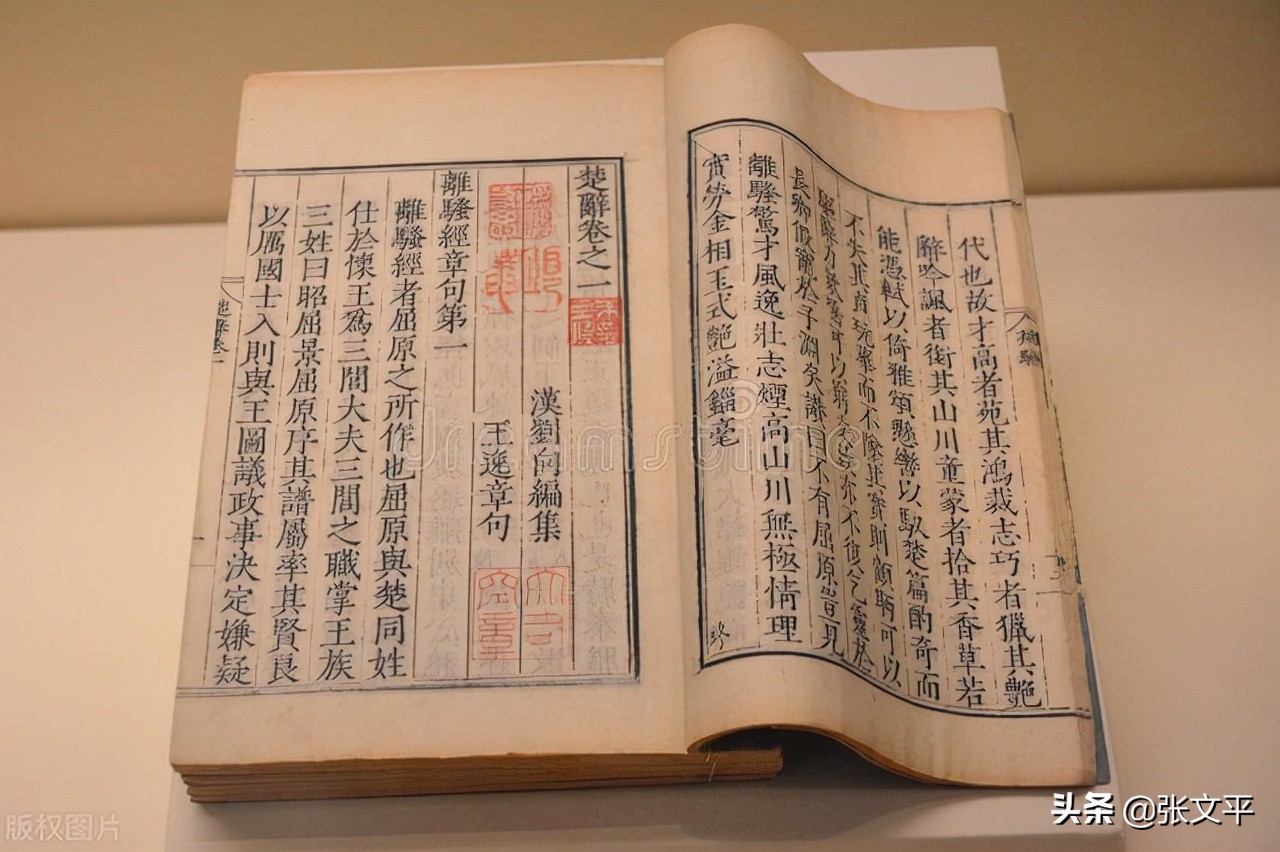 代也故才高者苑其鴻裁志巧者獵其艷
辭吟諷者銜其山川童蒙者拾其香草若
能憑軾以倚雅頌懸轡以馭楚篇酌奇而
不失其貞翫華而不墜其實則顧盼可以
可以窮文致亦不復乞靈於
長卿假寵於子淵矣讚曰不有屈原豈見
離騷驚才風逸壯志煙高山川無極情理
實勞金相玉式艷溢錙毫
終
楚辭卷之一
漢劉向編集
王逸章句
離騷經章句第一
離騷經者屈原之所作也屈原與楚同姓
仕於懷王為三閭大夫三閭之職掌王族
三姓曰昭屈景屈原序其譜屬率其賢良
以厲國士入則與王圖議政事決定嫌疑
楚辭卷一
dreamstime
版权图片
头条 @张文平